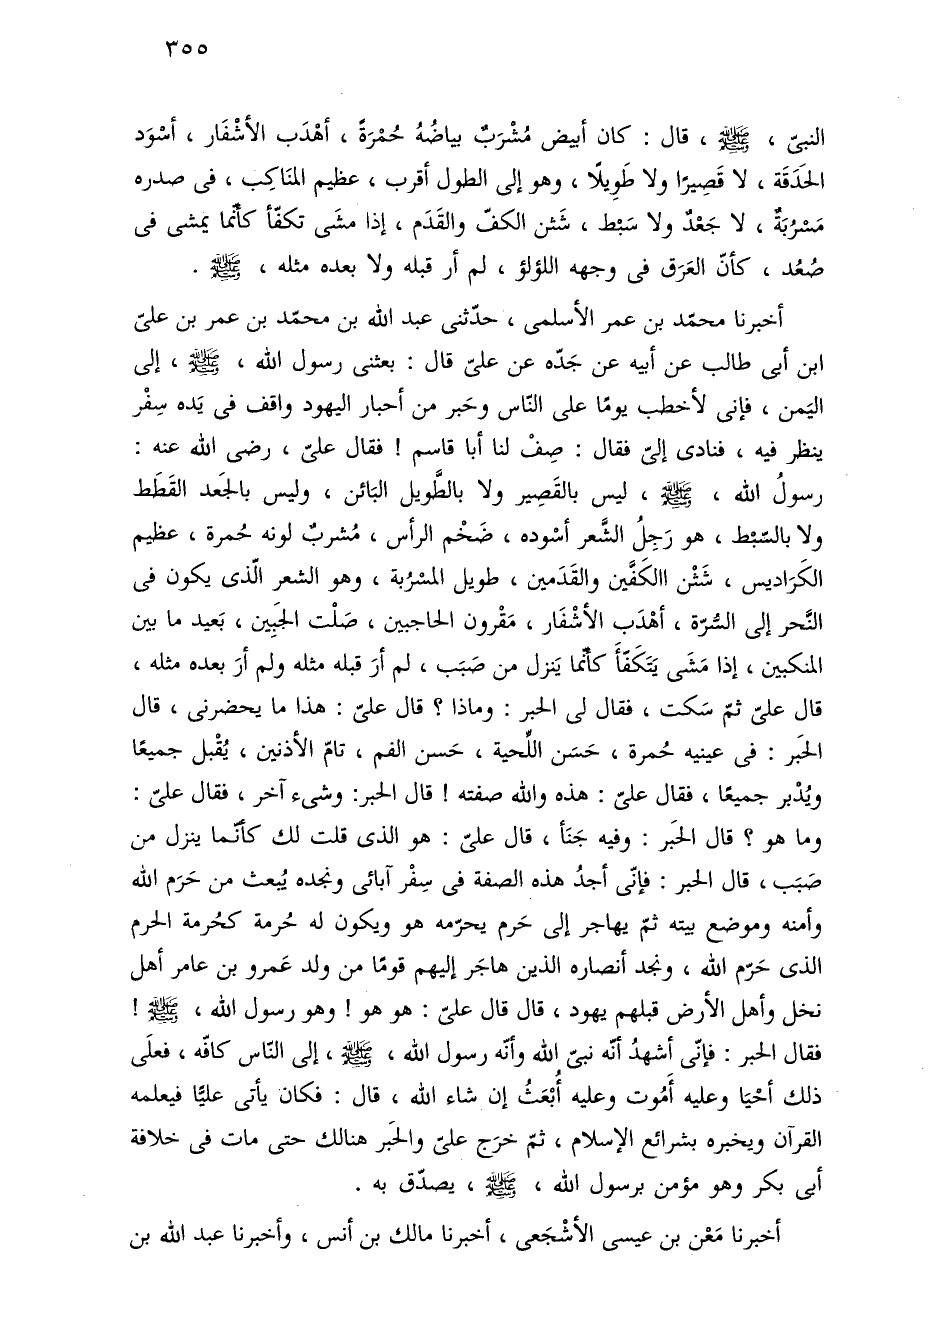 ٣٥٥
النبىّ ، ﷺ ، قال : كان أبيض مُشْرَبٌ بياضُهُ حُمْرَةً ، أهْدَب الأشْفَار ، أسْوَد
الحَدَقَة ، لا قَصِيرًا ولا طَوِيلًا ، وهو إلى الطول أقرب ، عظيم المنَاكِب ، فى صدره
مَسْرُبَةٌ ، لا جَعْدٌ ولا سَبْط ، شَثن الكفّ والقَدَم ، إذا مشَى تكفّأ كأنّما يمشى فى
صُعُد ، كأنّ العَرَق فى وجهه اللؤلؤ ، لم أر قبله ولا بعده مثله ، ﷺ .
أخبرنا محمّد بن عمر الأسلمى ، حدّثنى عبد الله بن محمّد بن عمر بن علىّ
ابن أبى طالب عن أبيه عن جَدّه عن علىّ قال : بعثنى رسول الله ، ﷺ ، إلى
اليَمن ، فإنى لأخطب يومًا على النّاس وحَبر من أحبار اليهود واقف فى يَده سِفْر
ينظر فيه ، فنادى إلىّ فقال : صِفْ لنا أبا قاسم ! فقال علىّ ، رضى الله عنه :
رسولُ الله ، ﷺ ، ليس بالقَصِير ولا بالطَّويل البَائن ، وليس بالجَعد القَطَط
ولا بالسّبْط ، هو رَجِلُ الشَّعر أسْوده ، ضَخْم الرأس ، مُشربٌ لونه حُمرة ، عظيم
الكَرَاديس ، شَثْن االكَفَّين والقَدَمين ، طويل المسْرُبة ، وهو الشعر الّذى يكون فى
النَّحر إلى السُّرّة ، أهْدَب الأشْفَار ، مَقْرون الحاجبين ، صَلْت الجَبِين ، بَعيد ما بين
المنكبين ، إذا مَشَى يَتَكَفّأَ كأنّما يَنزل من صَبَب ، لم أرَ قبله مثله ولم أرَ بعده مثله ،
قال علىّ ثمّ سَكت ، فقال لى الحبر : وماذا ؟ قال علىّ : هذا ما يحضرنى ، قال
الحَبر : فى عينيه حُمرة ، حَسَن اللِّحية ، حَسن الفم ، تامّ الأذنين ، يُقْبل جميعًا
ويُدْبر جميعًا ، فقال علىّ : هذه والله صفته ! قال الحبر: وشىء آخر ، فقال علىّ :
وما هو ؟ قال الحَبر : وفيه جَنَأ ، قال علىّ : هو الذى قلت لك كأنّما ينزل من
صَبَب ، قال الحبر : فإنّى أجدُ هذه الصفة فى سِفْر آبائى ونجده يُبعث من حَرَم الله
وأمنه وموضع بيته ثمّ يهاجر إلى حَرم يحرّمه هو ويكون له حُرمة كحُرمة الحرم
الذى حَرّم الله ، ونجد أنصاره الذين هاجَر إليهم قومًا من ولد عَمرو بن عامر أهل
نخل وأهل الأرض قبلهم يهود ، قال قال علىّ : هو هو ! وهو رسول الله ، ﷺ !
فقال الحبر : فإنّى أشهدُ أنّه نبىّ الله وأنّه رسول الله ، ﷺ ، إلى النّاس كافّه ، فعلَى
ذلك أحْيَا وعليه أَمُوت وعليه أُبْعَثُ إن شاء الله ، قال : فكان يأتى عليًّا فيعلمه
القرآن ويخبره بشرائع الإسلام ، ثمّ خرَج علىّ والحَبر هنالك حتى مات فى خلافة
أبى بكر وهو مؤمن برسول الله ، ﷺ ، يصدّق به .
أخبرنا مَعْن بن عيسى الأشْجَعى ، أخبرنا مالك بن أنس ، وأخبرنا عبد الله بن